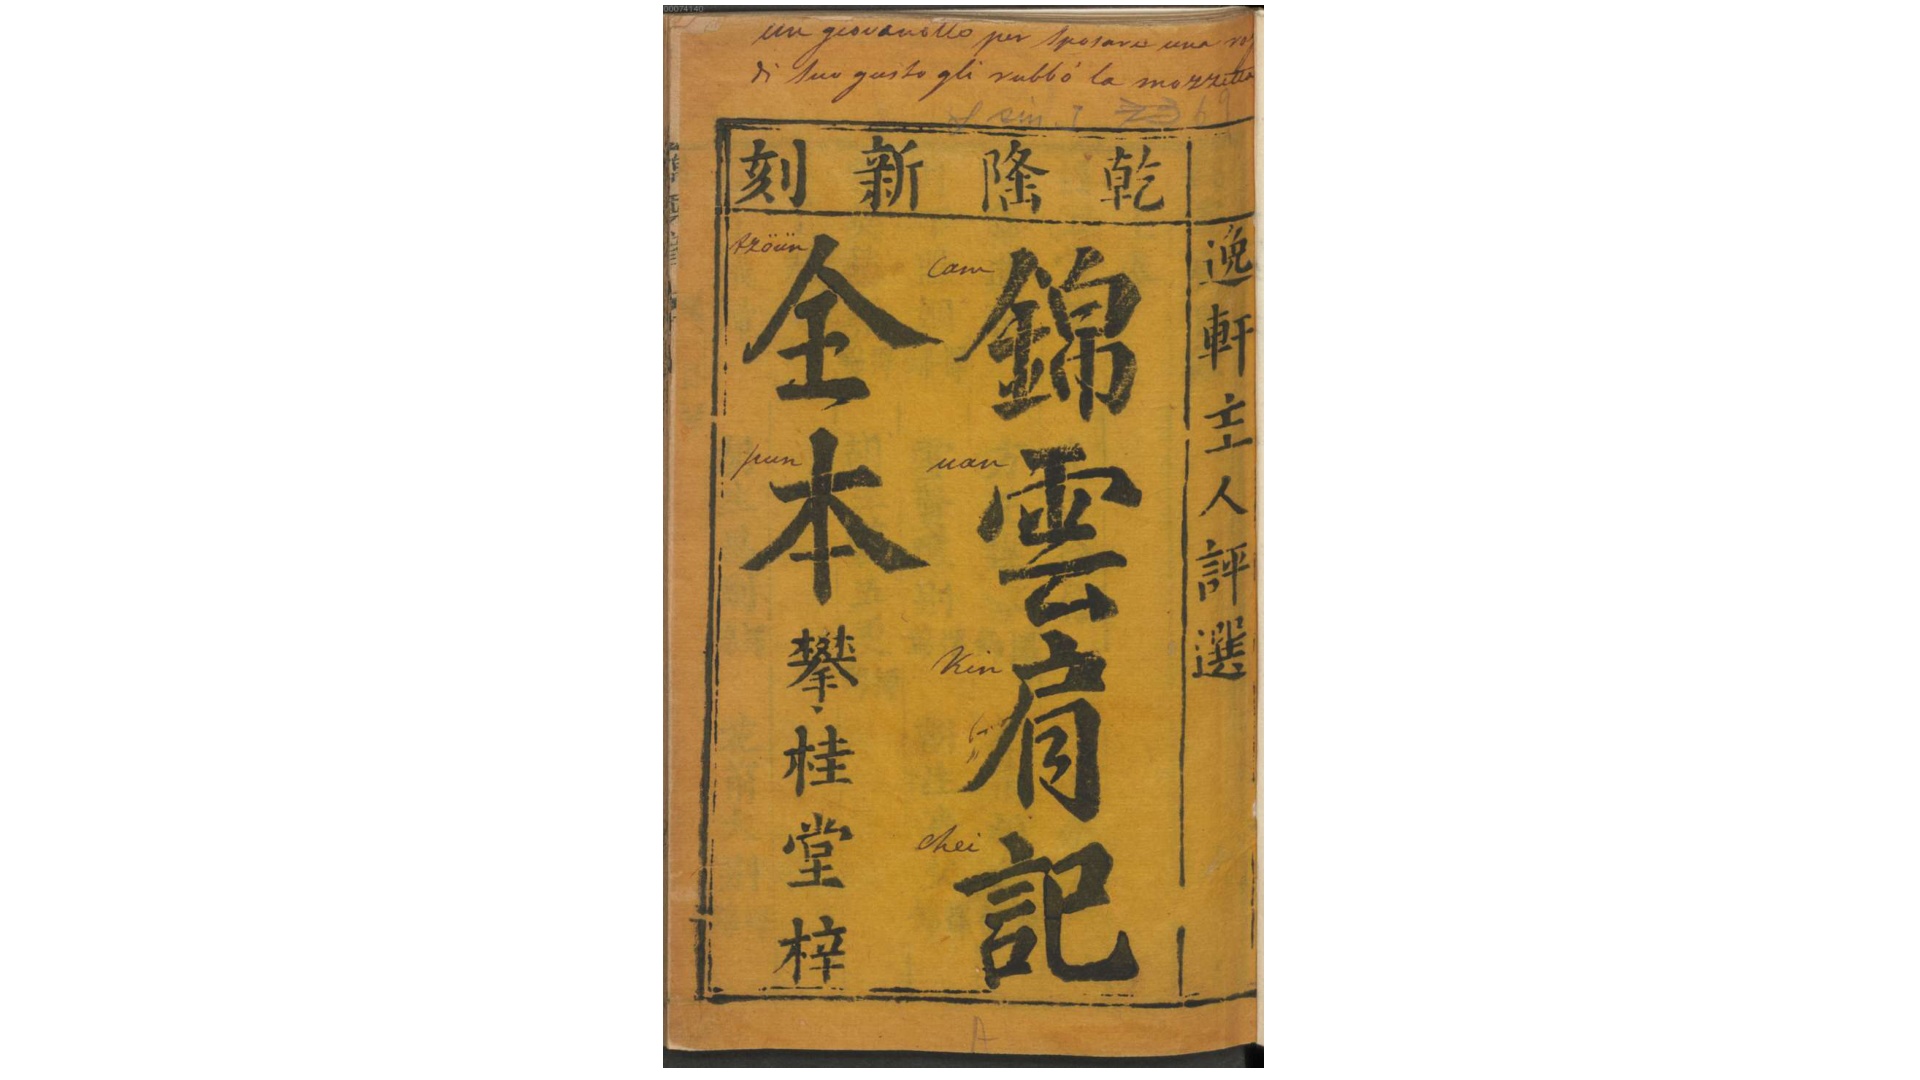 00074140
un giovanotto per sposare una
di suo gusto gli rubbó la mozzetta
乾隆新刻
逸軒主人評選
錦雲肩記
Cam
uan
Kin
chei
全本
tzöün
pun
攀桂堂梓
A